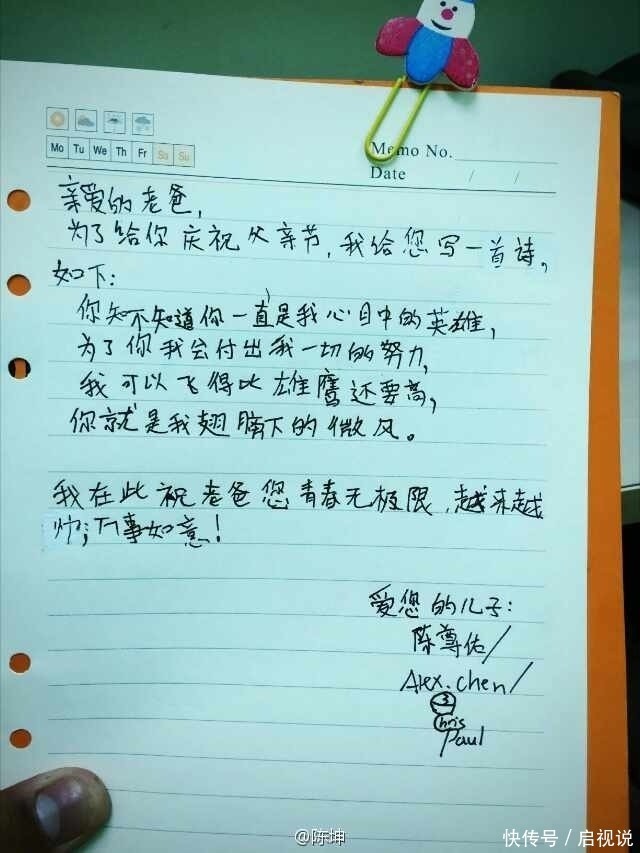 Mo Tu We Th Fr Sa Su
Memo No.
Date / /
亲爱的老爸,
为了给你庆祝父亲节,我给您写一首诗,
如下:
你知不知道你一直是我心目中的英雄,
为了你我会付出我一切的努力,
我可以飞得比雄鹰还要高,
你就是我翅膀下的微风。
我在此祝老爸您青春无极限,越来越
帅;万事如意!
爱您的儿子:
陈尊佑/
Alex.chen/
3
Chris
Paul
@陈坤
快传号/启视说